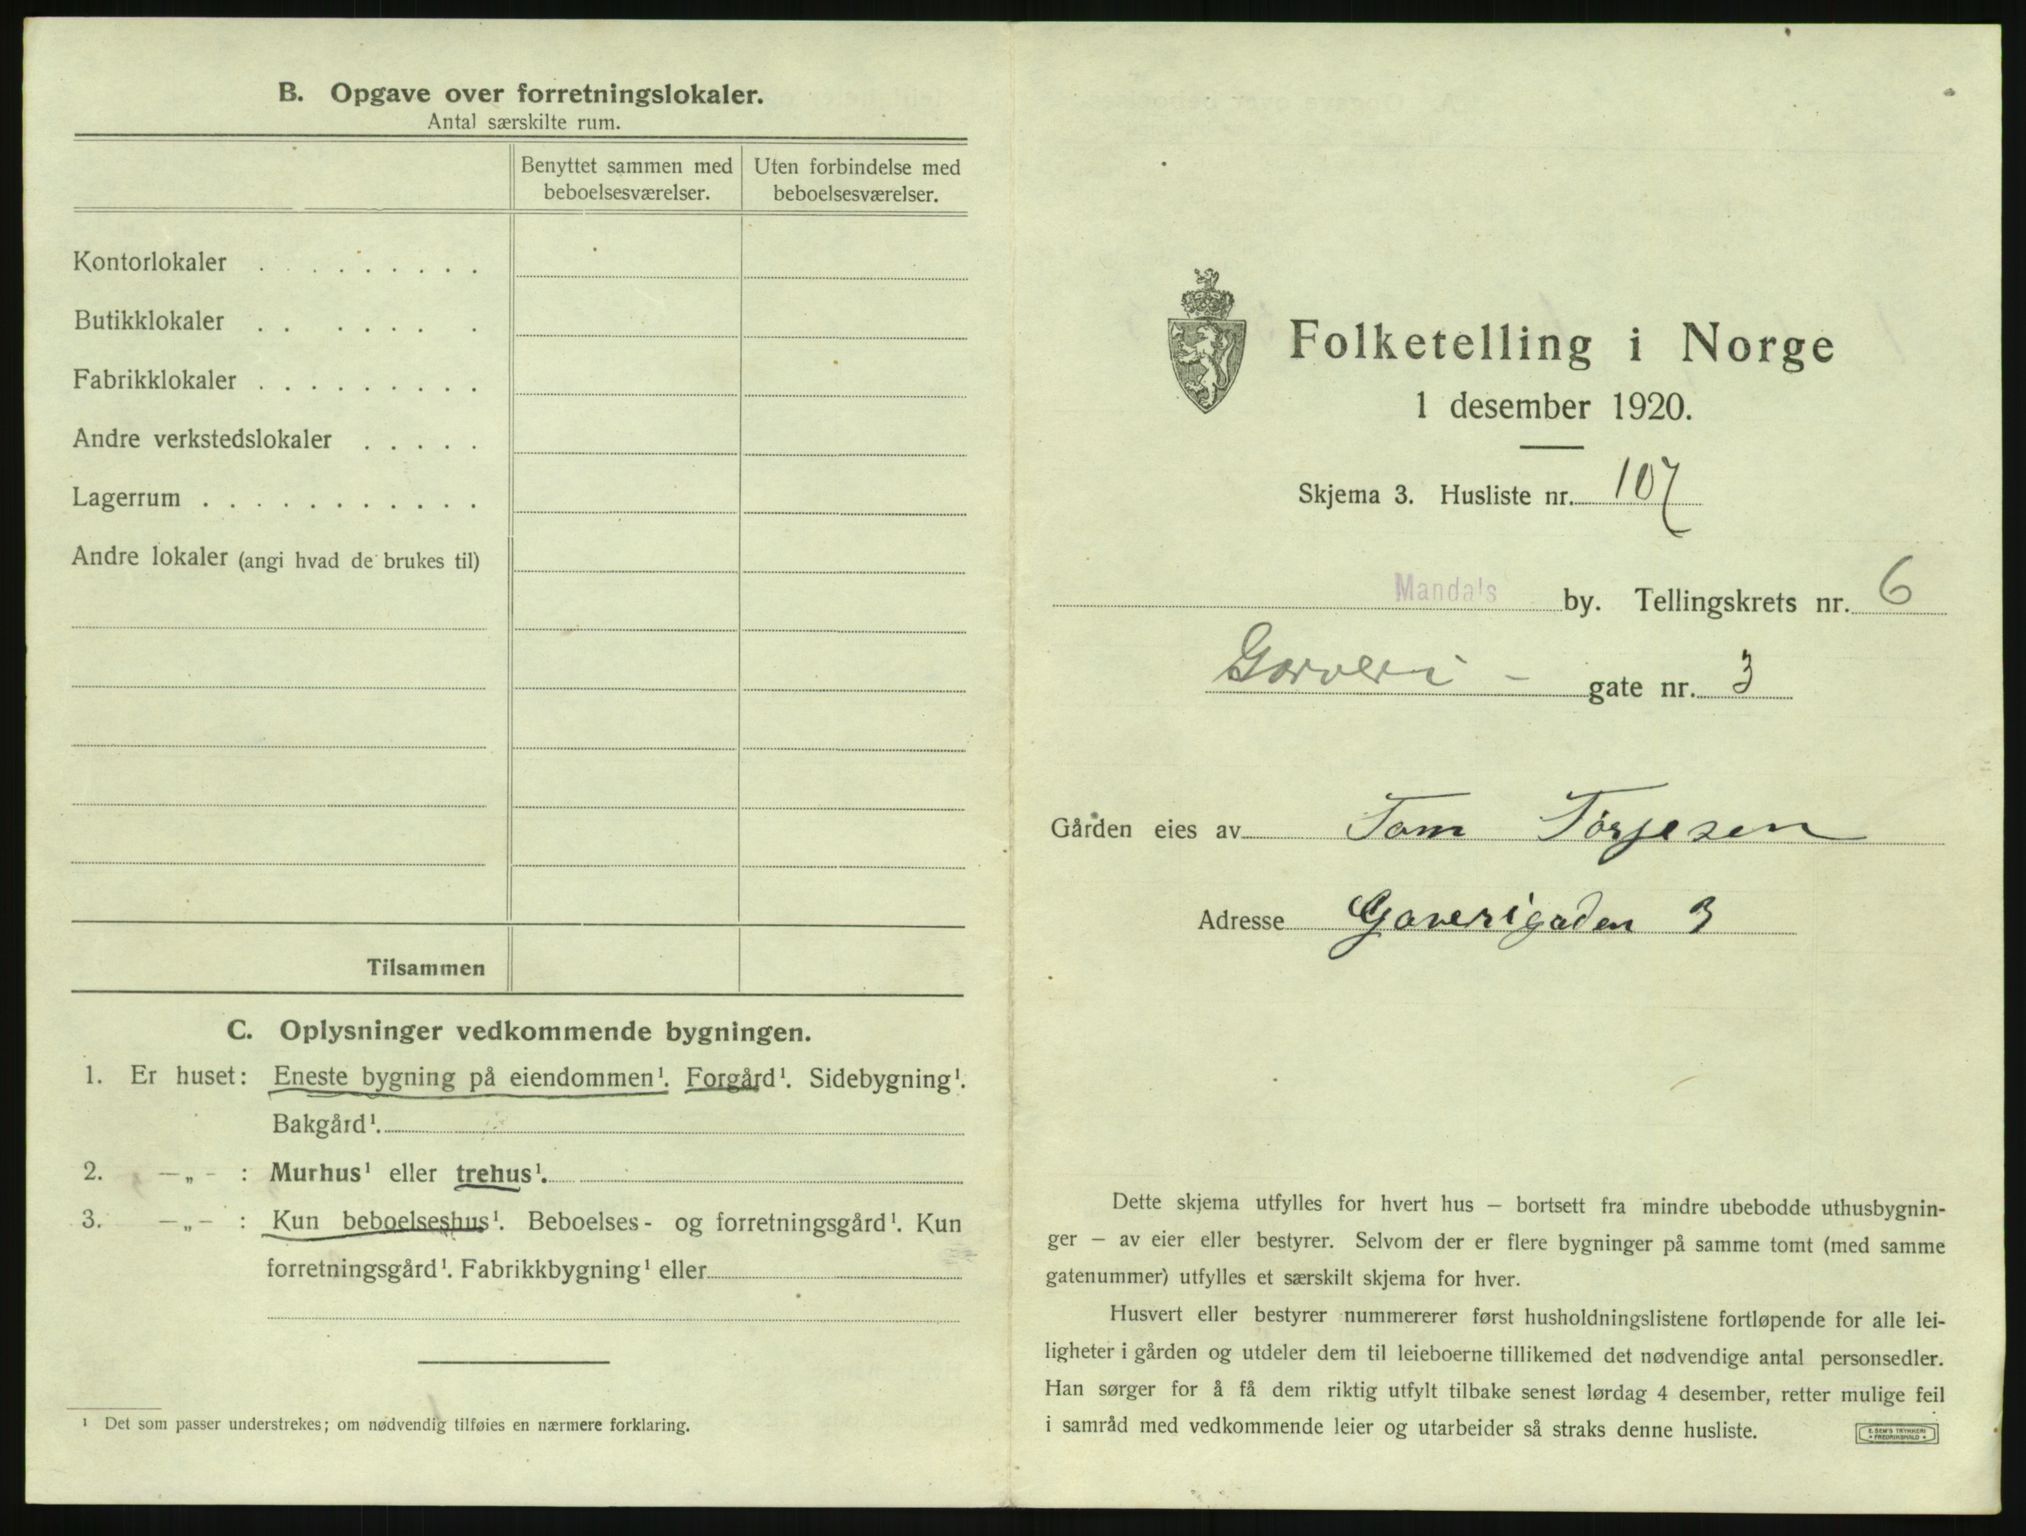 B. Opgave over forretningslokaler.
Antal særskilte rum.
Benyttet sammen med beboelsesværelser.
Uten forbindelse med beboelsesværelser.
Kontorlokaler . . . . . . . . .
Butikklokaler . . . . . . .
Fabrikklokaler . . . . . . . . .
Andre verkstedslokaler . . . . .
Lagerrum . . . . . . . . . . .
Andre lokaler (angi hvad de brukes til)
Tilsammen
C. Oplysninger vedkommende bygningen.
1. Er huset: Eneste bygning på eiendommen¹. Forgård¹. Sidebygning¹.
Bakgård¹.
2. —„— : Murhus¹ eller trehus¹.
3. —„— : Kun beboelseshus¹. Beboelses- og forretningsgård¹. Kun
forretningsgård¹. Fabrikkbygning¹ eller
¹ Det som passer understrekes; om nødvendig tilføies en nærmere forklaring.
Folketelling i Norge
1 desember 1920.
Skjema 3. Husliste nr. 107
Mandals by. Tellingskrets nr. 6
Garveri - gate nr. 3
Gården eies av Tom Torjesen
Adresse Gaverigaden 3
Dette skjema utfylles for hvert hus – bortsett fra mindre ubebodde uthusbygnin-
ger – av eier eller bestyrer. Selvom der er flere bygninger på samme tomt (med samme
gatenummer) utfylles et særskilt skjema for hver.
Husvert eller bestyrer nummererer først husholdningslistene fortløpende for alle lei-
ligheter i gården og utdeler dem til leieboerne tillikemed det nødvendige antal personsedler.
Han sørger for å få dem riktig utfylt tilbake senest lørdag 4 desember, retter mulige feil
i samråd med vedkommende leier og utarbeider så straks denne husliste.
E. SEM'S TRYKKERI
FREDRIKSHALD